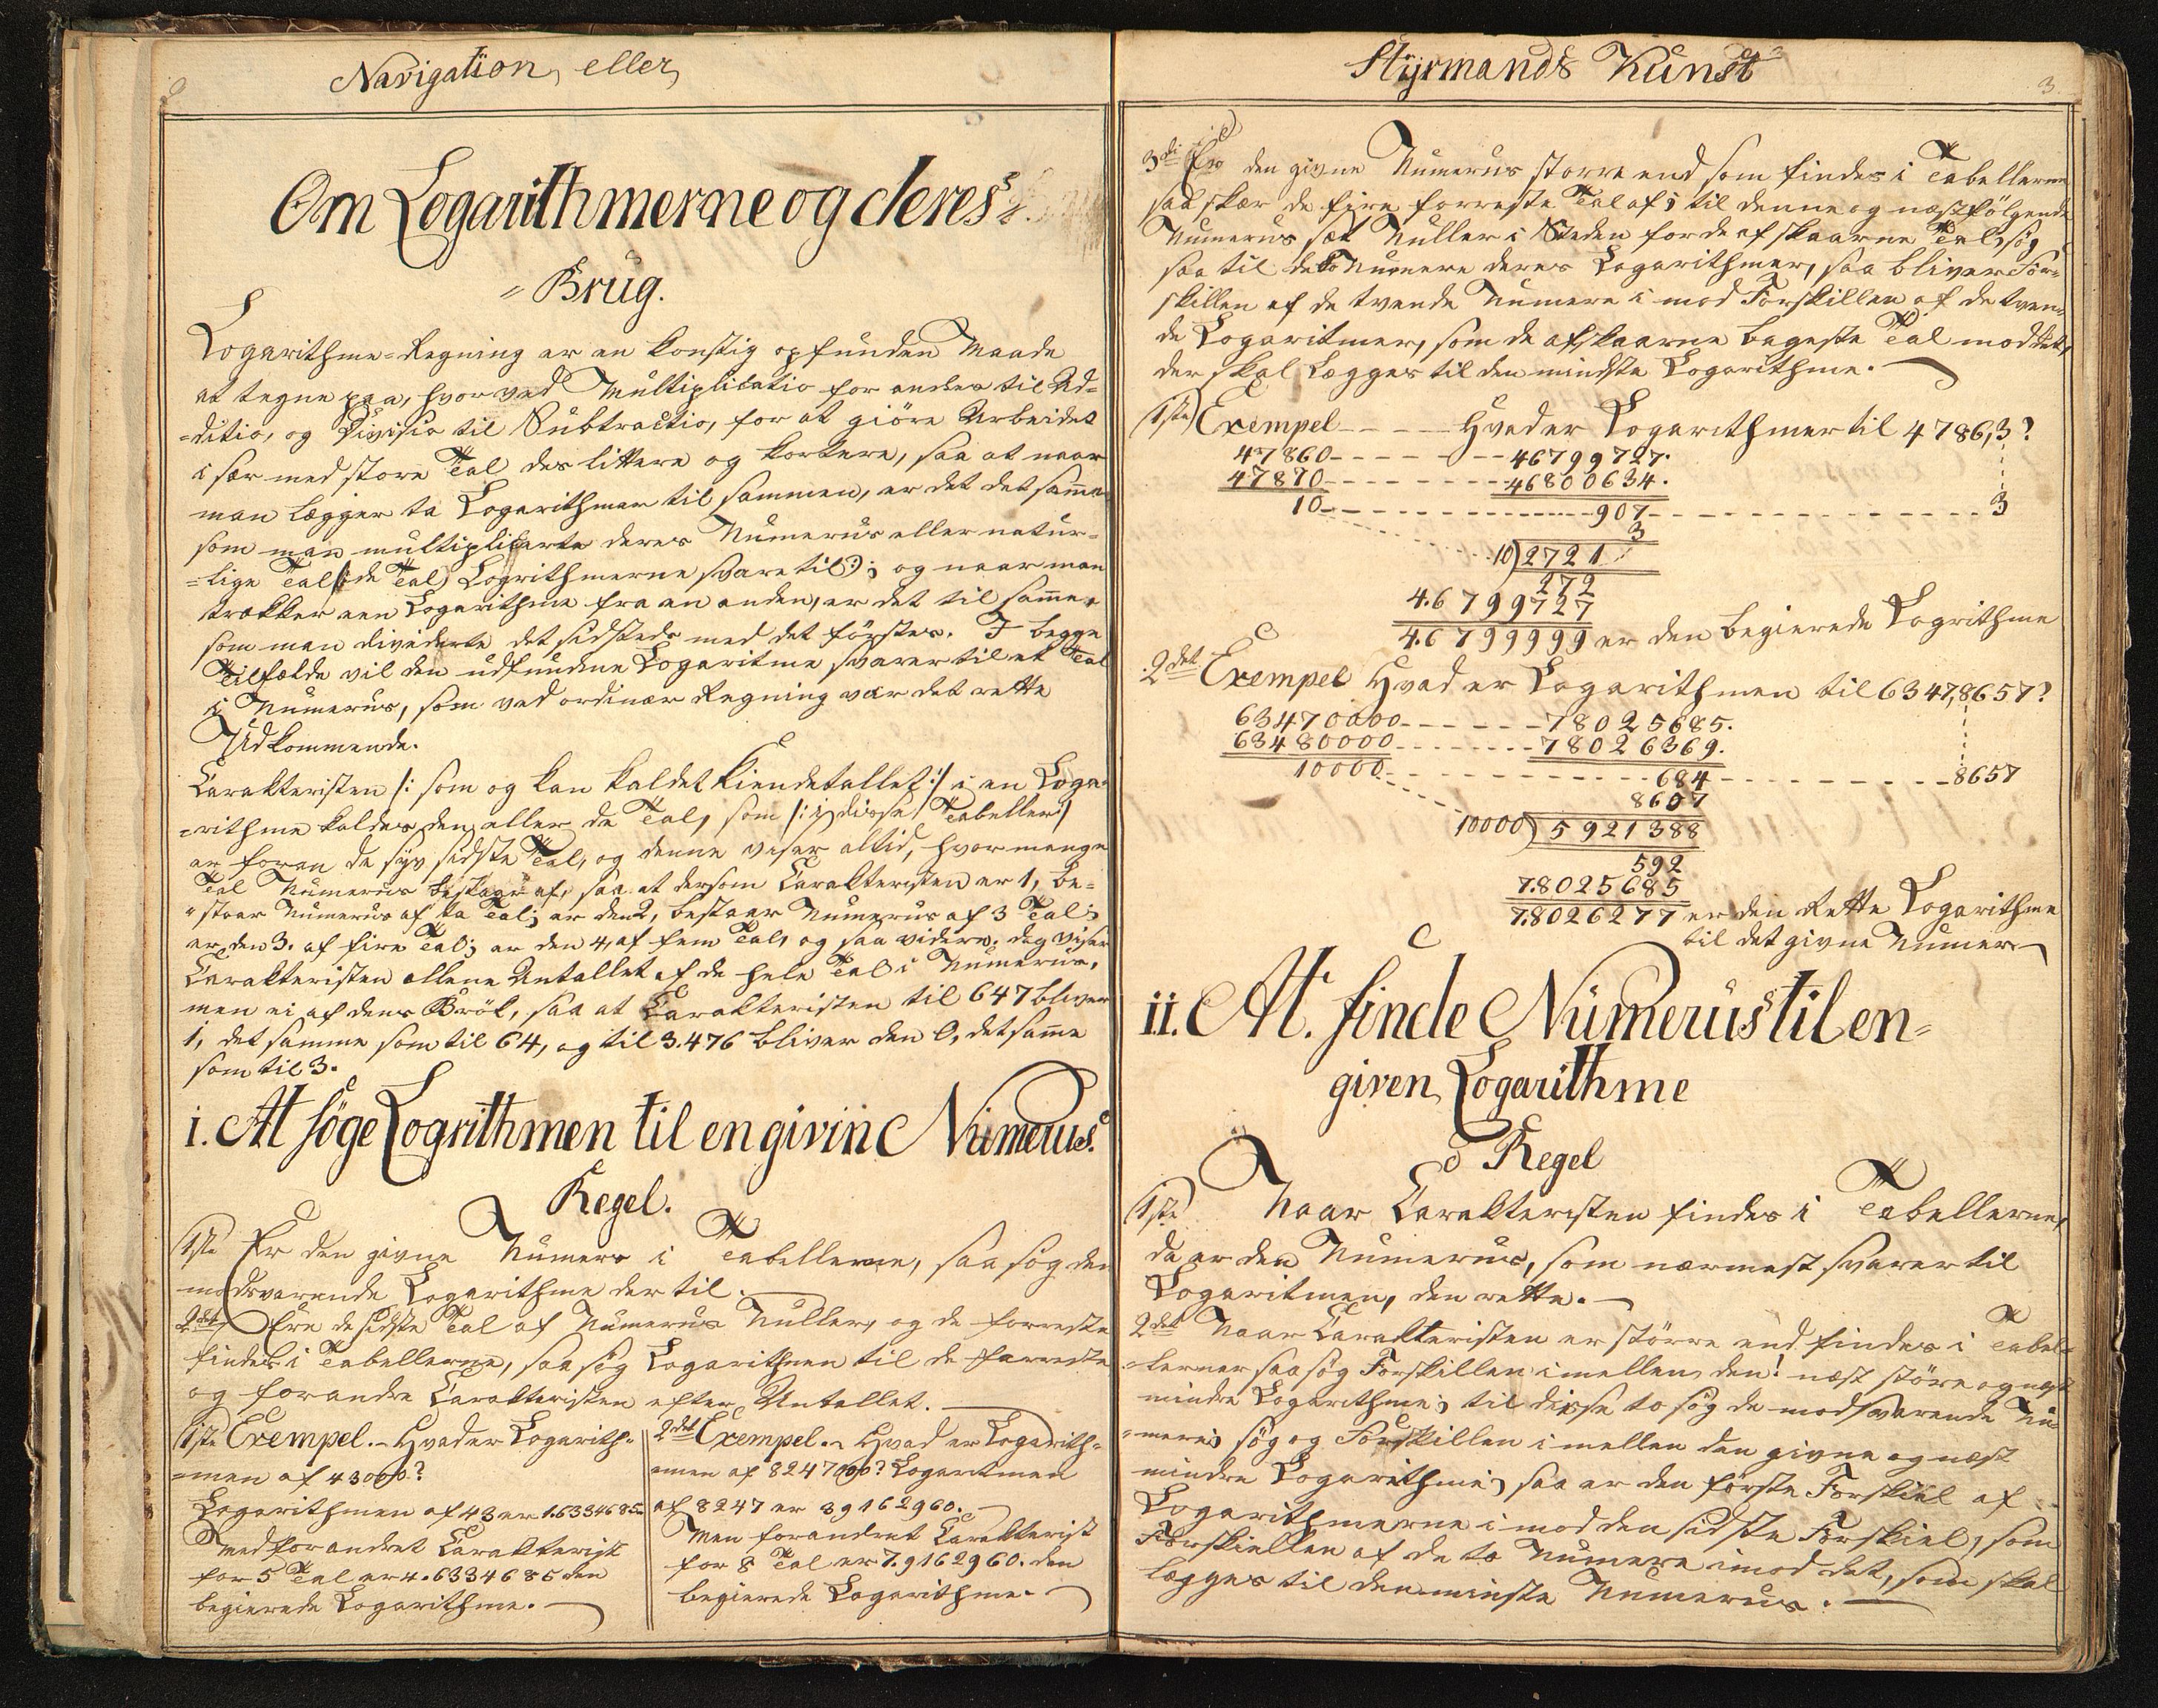 Navigation, eller,
Om Logarithmerne og deres
= Brug.
Logarithme=Regning er en konstig opfunden Maade
at regne paa, hvorved Multiplicatio forandres til Ad=
=ditio, og Divisio til Subtractio, for at giöre Arbeidet
i sær med store Tal des lettere og kortere, saa at naar
man lægger to Logarithmer til sammen, er det det samme
som man multiplicerte deres Numerus eller natur=
=lige Tal (: de Tal Logrithmerne svare til :); og naar man
trækker een Logarithme fra en anden, er det til samme,
som man dividerte det sidstes med det förstes. I begge
Tilfælde vil den udfundne Logaritme svarer til et Tal
i Numerus, som ved ordinær Regning var det rette
Udkommende.
Carakteristen /: som og kan kaldet Kiendetallet :/ i en Loga=
=rithme kaldes den eller de Tal, som /: i disse Tabeller :/
er foran de syv sidste Tal, og denne viser altid, hvor mange
Tal Numerus bestaar af, saa at dersom Carakteristen er 1, be=
=staar Numerus af to Tal; er den 2, bestaar Numerus af 3 Tal;
er den 3. af fire Tal; er den 4, af fem Tal, og saa videre; dog viser
Carakteristen allene Antallet af de hele Tal i Numerus,
men ei af dens Brök, saa at Carakteristen til 647 bliver
1, det samme som til 64, og til 3.476 bliver den 0, det samme
som til 3.
i. At söge Logrithmen til en givin Numerus.
Regel.
1ste Er den givne Numero i Tabellerne, saa søg den
modsvarende Logarithme der til.
2det Ere de sidste Tal af Numerus Nuller, og de forreste
findes i Tabellerne, saa søg Logarithmen til de forreste
og forandre Carakteristen efter Antallet.
1ste Exempel. Hvad er Logarith=
=men af 43000?
Logarithmen af 43 er 1.6334685.
Med forandret Carakterist
for 5 Tal er 4.6334685 den
begierede Logarithme.
2det Exempel. Hvad er Logarith=
=men af 8247000? Logaritmen
af 8247 er 39162960.
Men forandret Carakterist
for 8 Tal er 7.9162960. den
begierede Logarithme.
Styrmands Kunst
3.
3di Er den givne Numerus storre end som findes i Tabellerne
saa skær de fire forreste Tal af; til denne og næstfølgende
Numerus sæt Nuller i Steden for de afskaarne Tal, søg
saa til disse Numere deres Logarithmer, saa bliver For=
skillen af de tvende Numere i mod Forskillen af de tven=
de Logaritmer, som de afskaarne bageste Tal mod det,
der skal Lægges til den mindste Logarithme.
1ste Exempel Hvad er Logarithmer til 4786,3?
47860 46799727.
47870 46800634.
10 907 3
3
10)2721
272
4.6799727
4.6799999 er den begierede Logrithme
2det Exempel Hvad er Logarithmen til 6347,8657?
63470000 78025685.
63480000 78026369.
10000 684 8657
8657
10000)5921388
592
7.8025685
7.8026277 er den Rette Logarithme
til det givne Numer
ii. At. finde Numerus til en=
given, Logarithme
Regel
1ste Naar Carakteristen findes i Tabellerne,
da er den Numerus, som nærmest svarer til
Logaritmen, den rette.
2det Naar Carakteristen er större end findes i Tabel=
=lerner saa søg Forskillen imellem den! næst störe og næst
mindre Logarithme; til disse to søg de modsvarende Nu=
=mere; søg og Forskillen imellem den givne og næst
mindre Logarithme; saa er den förste Forskiel af
Logarithmerne i mod den sidste Forskiel, som
Forskiellen af de to Numere imod det, som skal
lægges til den minste Numerus.